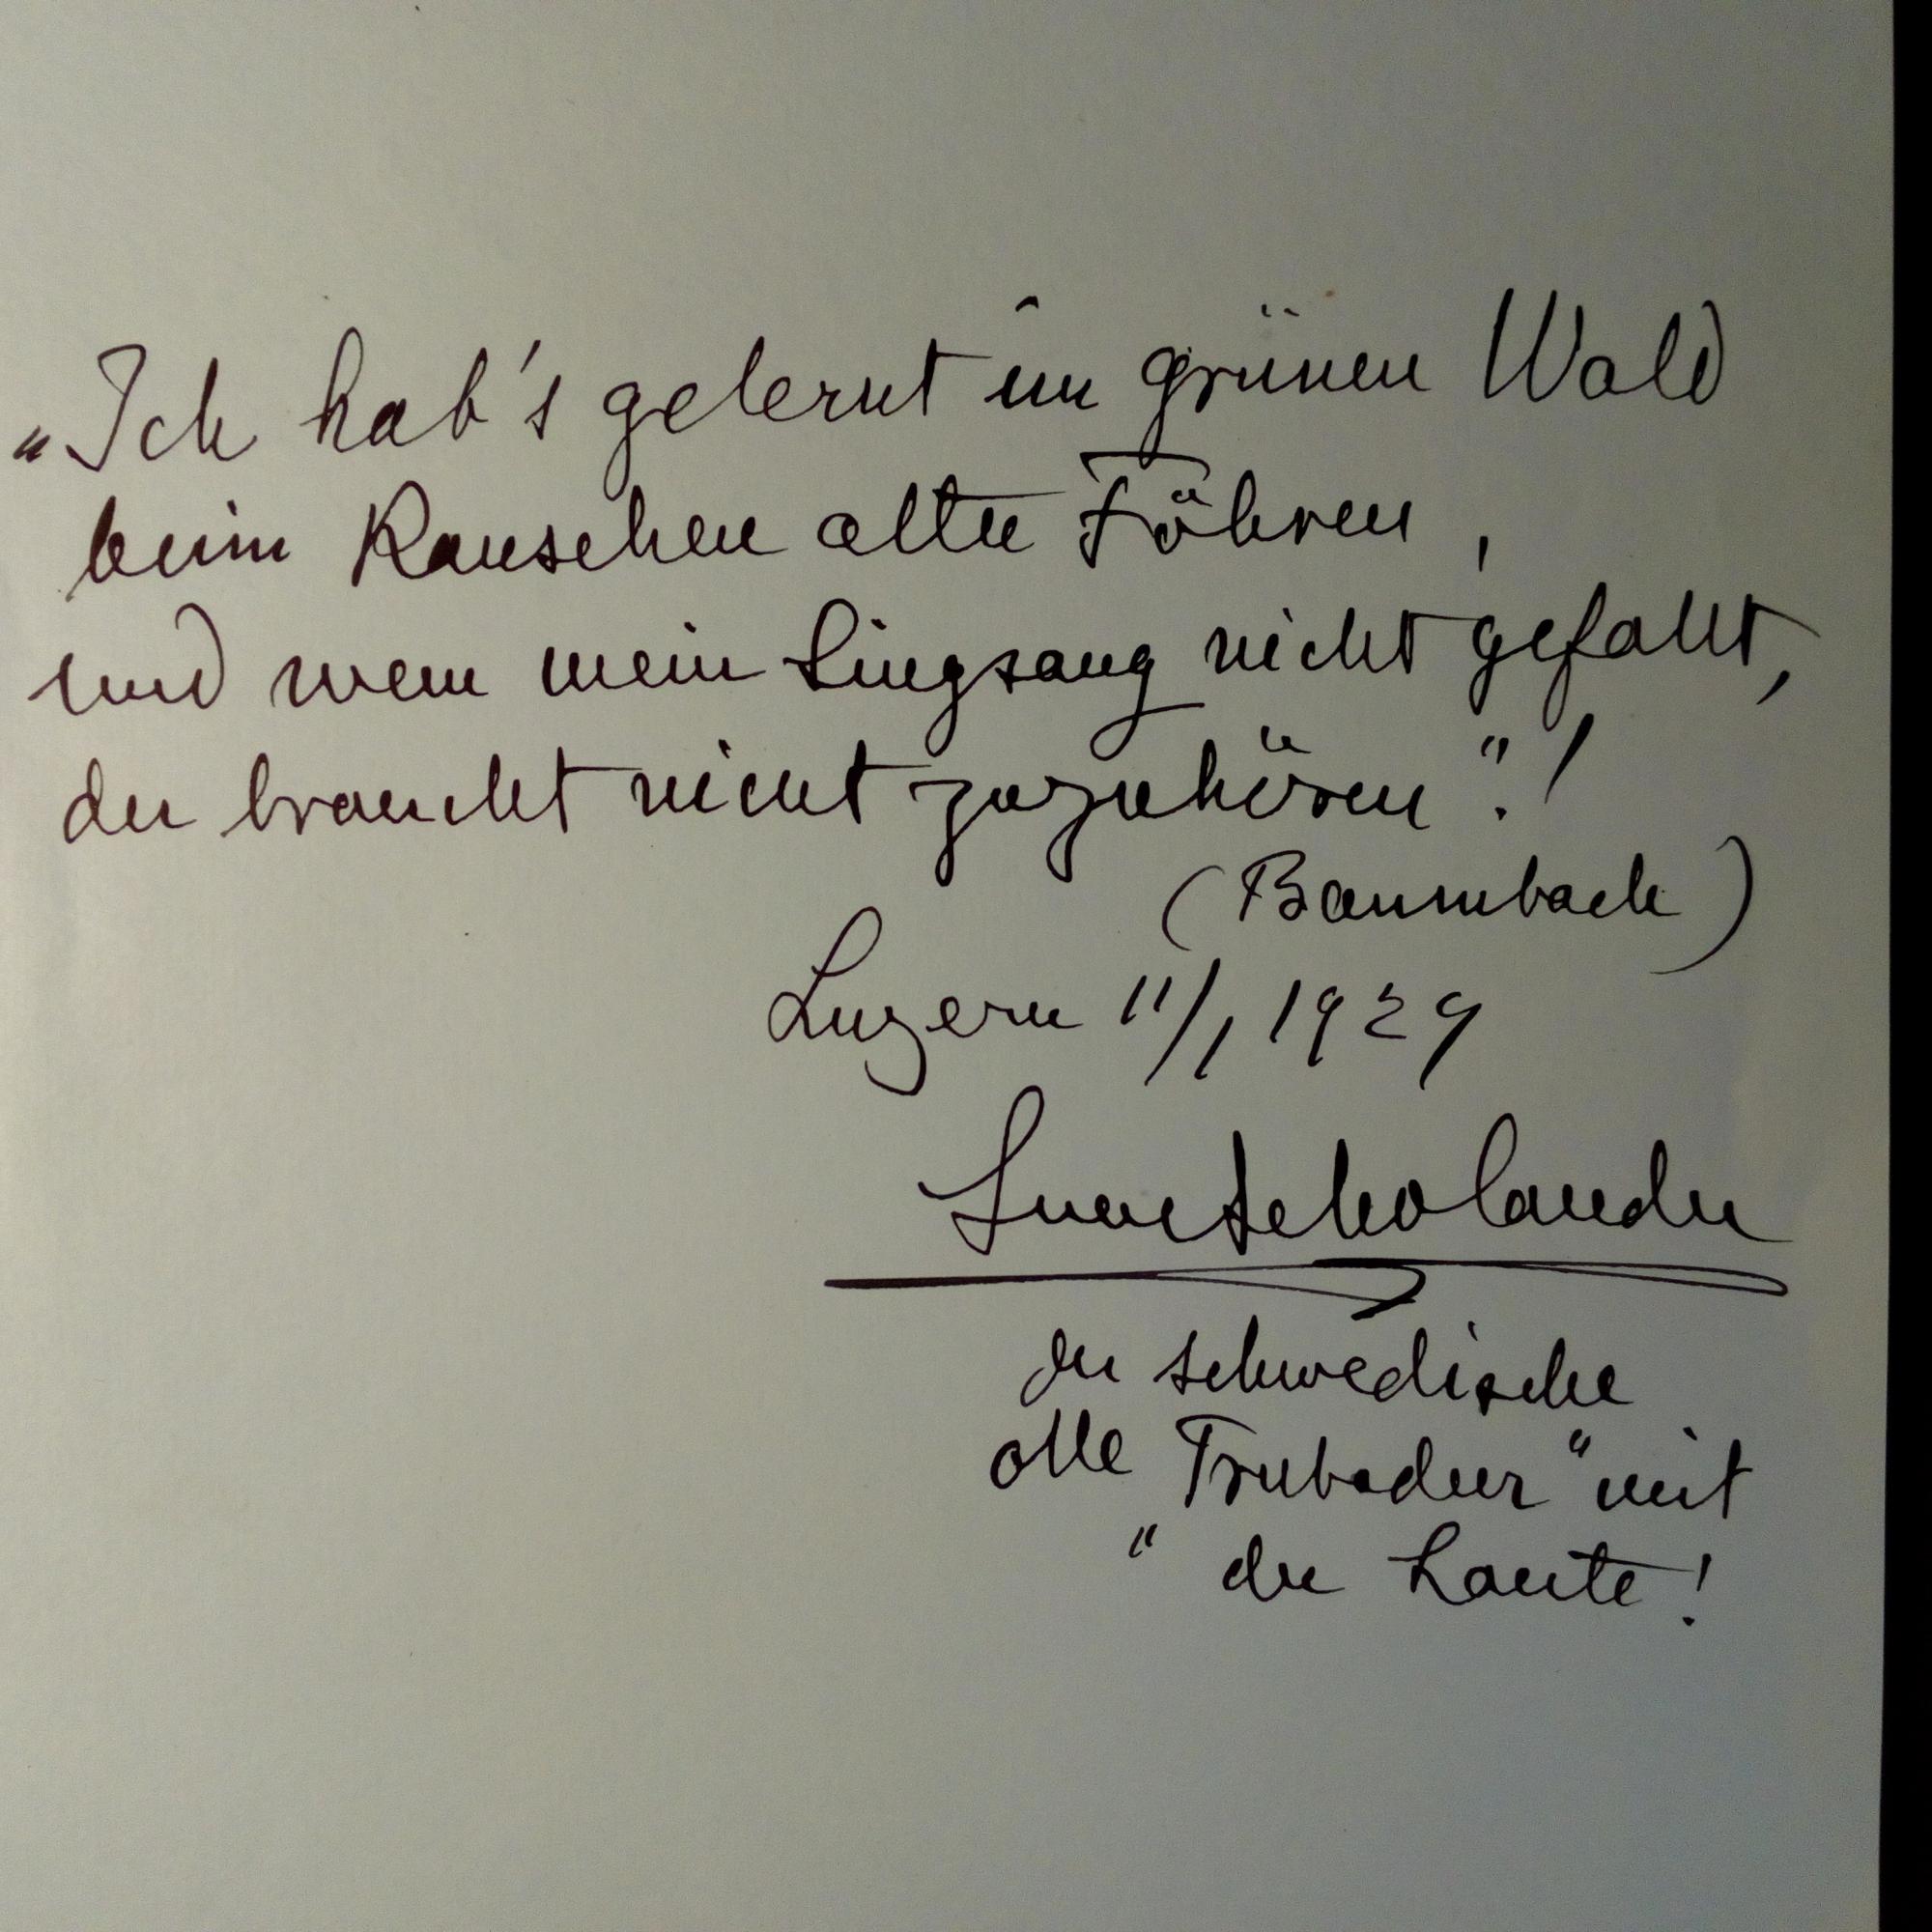 „Ich hab's gelernt im grünen Wald
beim Rauschen alter Föhren,
und wem mein Singsang nicht gefallt,
der braucht nicht zuzuhören“!
(Baumbach)
Luzern 11/1 1929
Sven Scholander
der schwedische
olle "Trubadur" mit
der Laute!